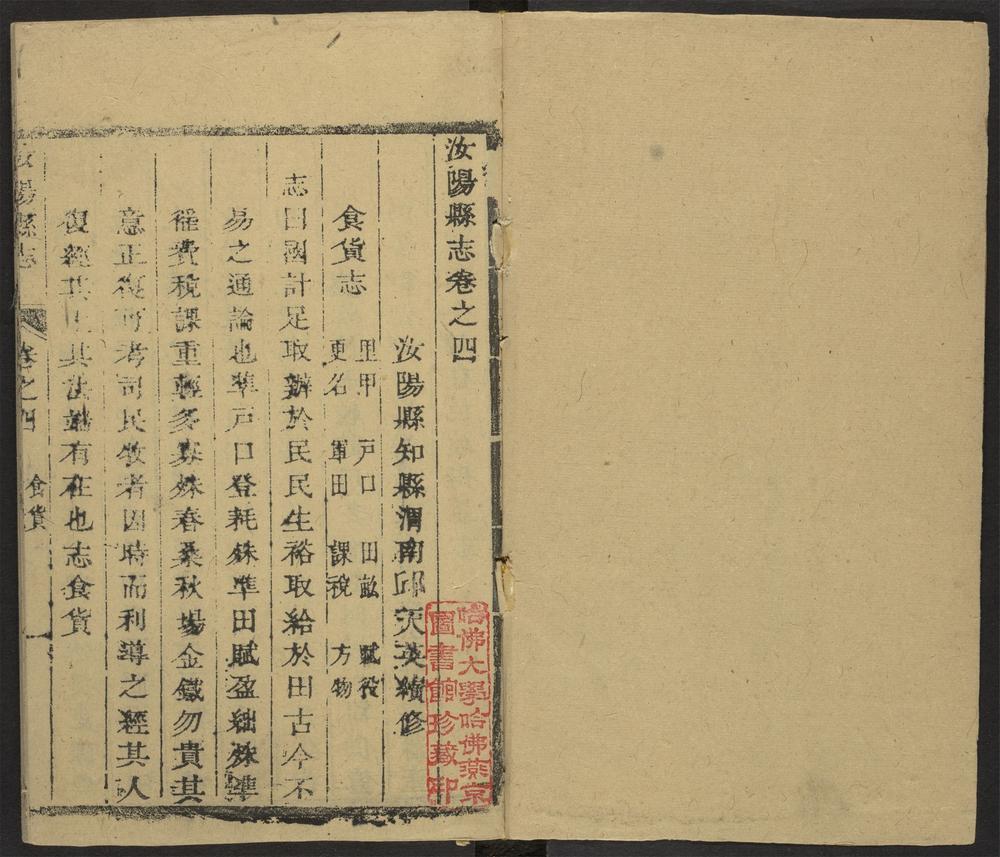 汝陽縣志卷之四
汝陽縣知縣渭南邱天英纘修
食貨志
里甲 戶口 田畝 賦役
更名 軍田 課稅 方物
志曰國計足取辦於民民生裕取給於田古今不
易之通論也準戶口登耗殊準田賦盈絀殊準
費稅課重輕多寡殊春桑秋場金鐵勿貴其
意正復可考司民牧者因時而利導之經其人
復經其 其法端有在也志食貨
汝陽縣志 卷之四 食貨 一
哈佛大學哈佛燕京
圖書館珍藏印